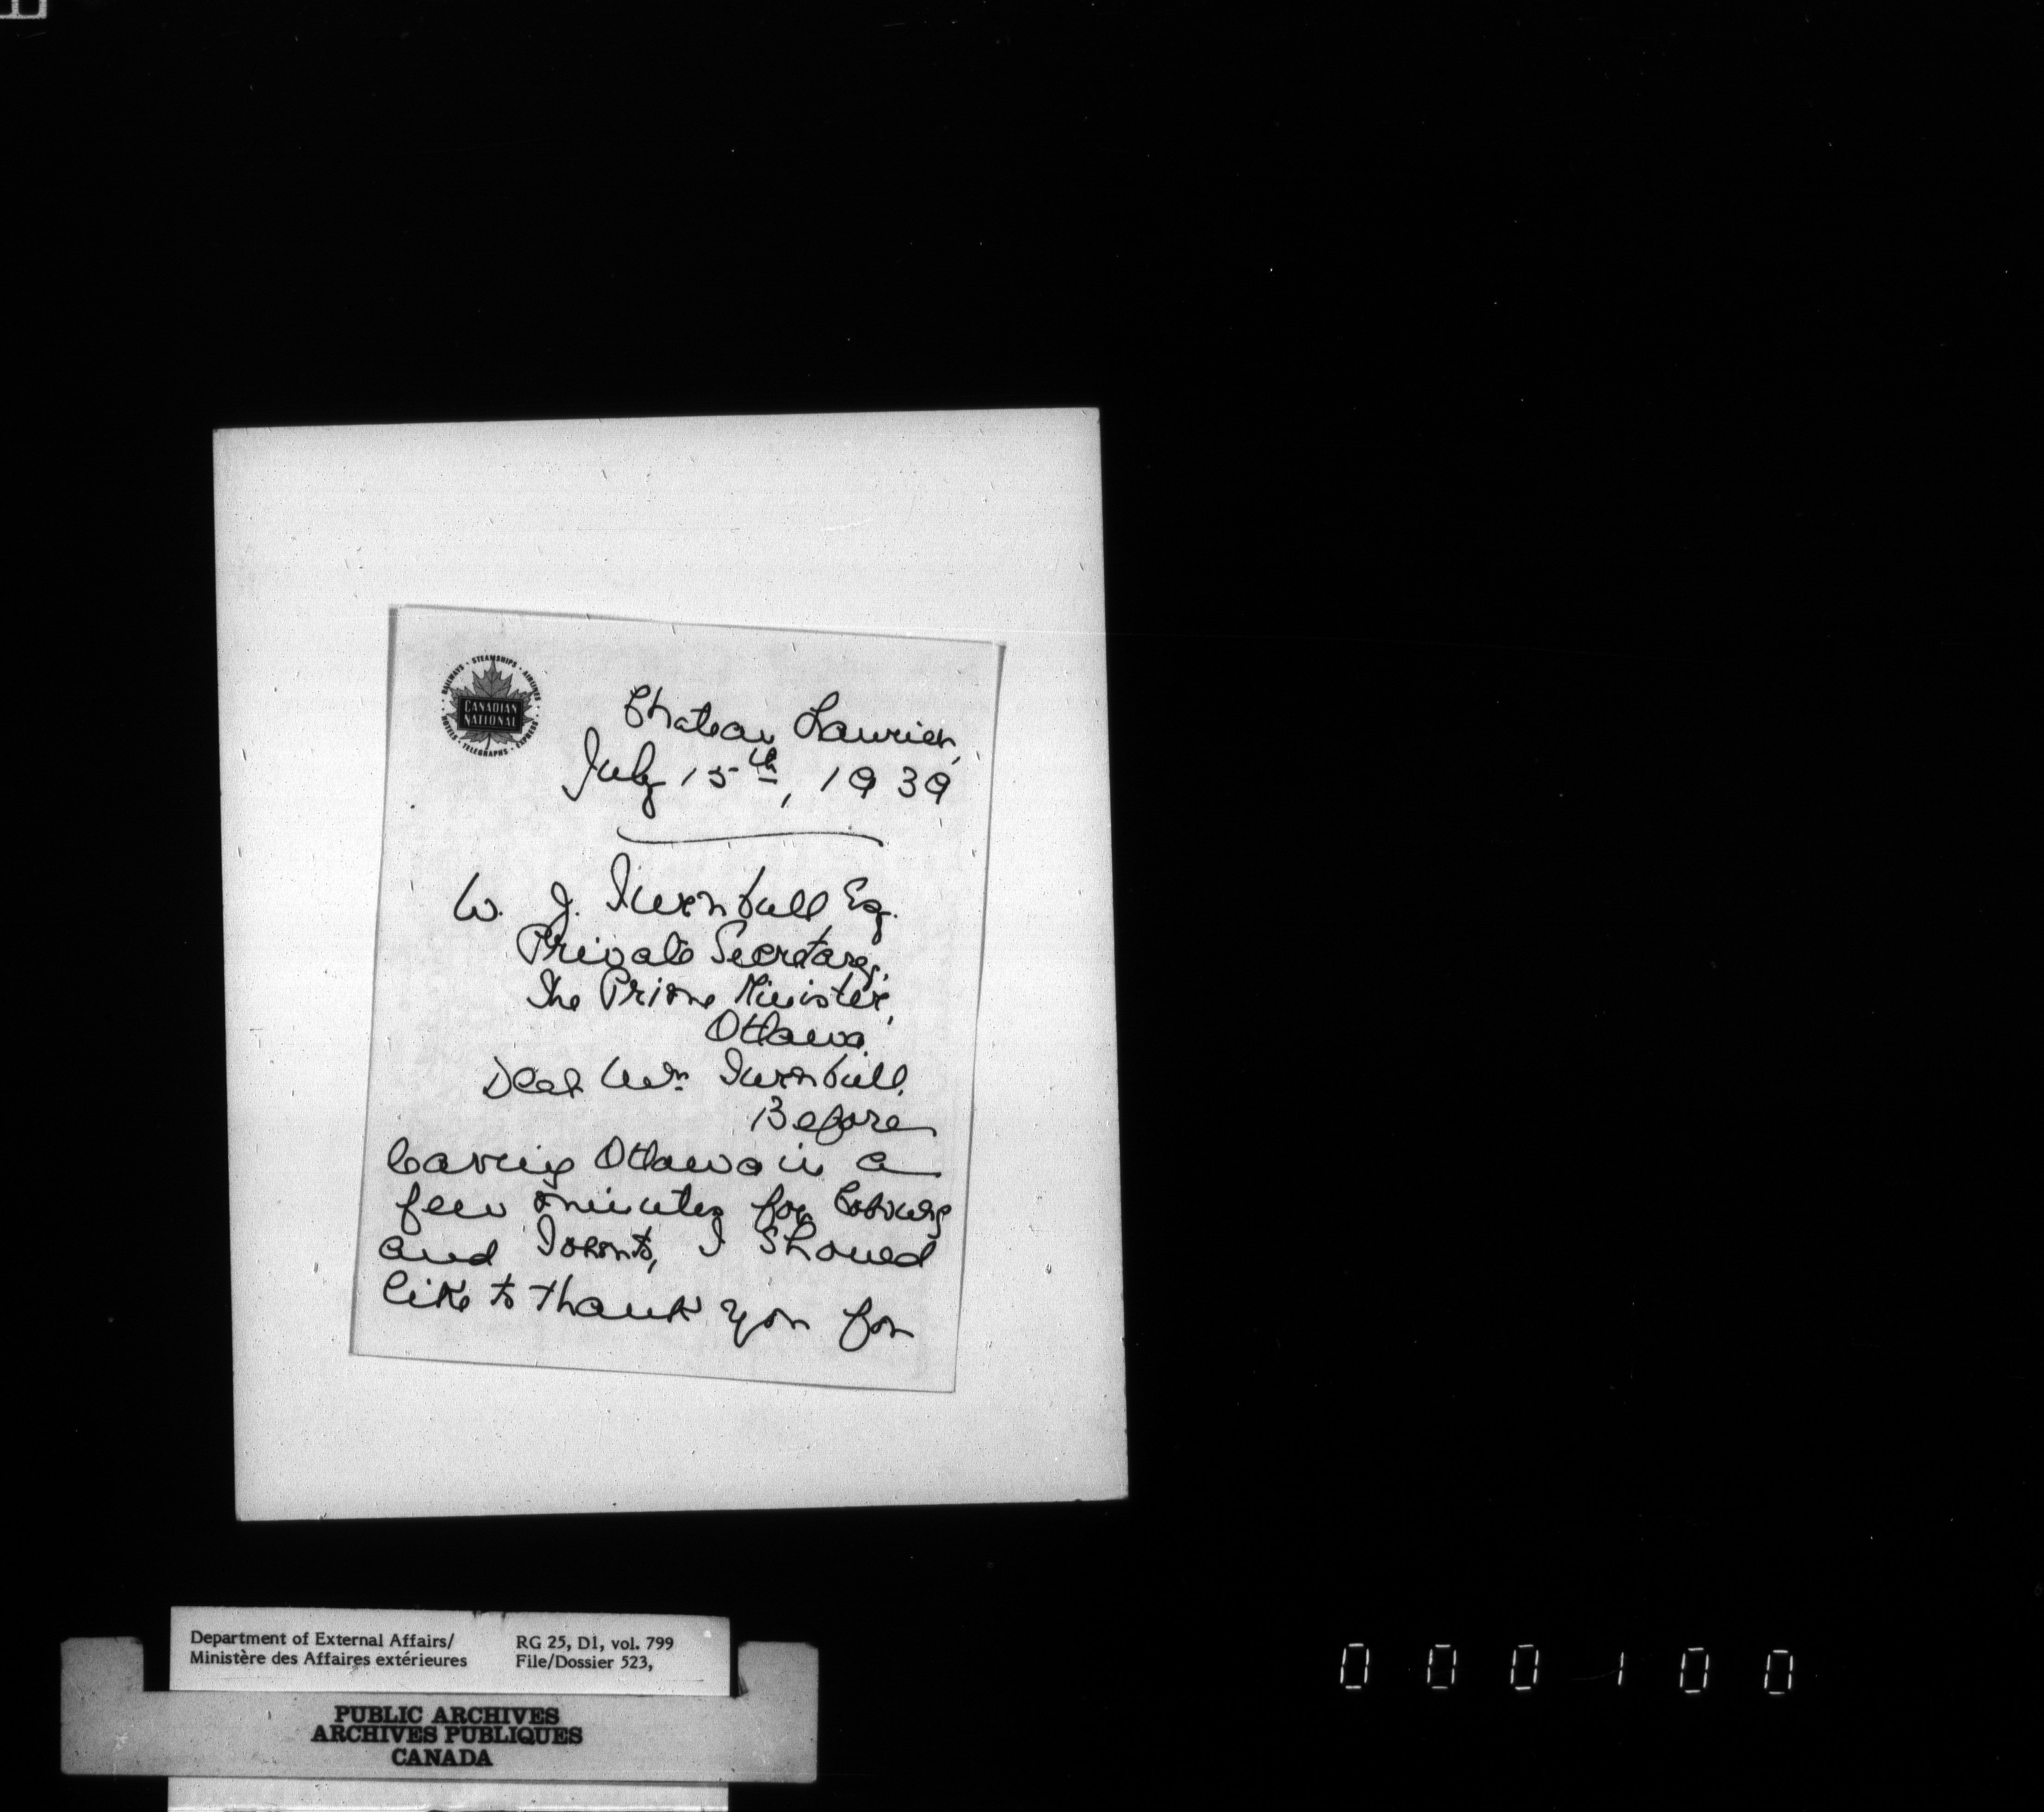 RAILWAYS · STEAMSHIPS · AIRLINES · HOTELS · TELEGRAPHS · EXPRESS
CANADIAN
NATIONAL
Chateau Laurier,
July 15th, 1939
W. J. Turnbull Esq.
Private Secretary,
The Prime Minister,
Ottawa.
Dear Mr. Turnbull,
Before
leaving Ottawa in a
few minutes for Cobourg
and Toronto, I should
like to thank you for
Department of External Affairs/
Ministère des Affaires extérieures
RG 25, D1, vol. 799
File/Dossier 523,
PUBLIC ARCHIVES
ARCHIVES PUBLIQUES
CANADA
000100